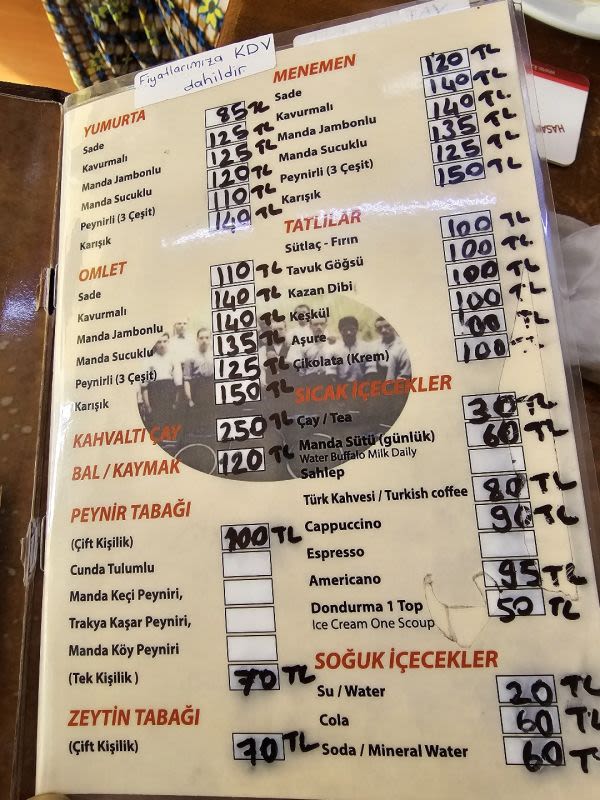 Fiyatlarımıza KDV
dahildir
YUMURTA
Sade 85 TL
Kavurmalı 125 TL
Manda Jambonlu 125 TL
Manda Sucuklu 120 TL
Peynirli (3 Çeşit) 110 TL
Karışık 140 TL
OMLET
Sade 110 TL
Kavurmalı 140 TL
Manda Jambonlu 140 TL
Manda Sucuklu 135 TL
Peynirli (3 Çeşit) 125 TL
Karışık 150 TL
KAHVALTI ÇAY 250 TL
BAL / KAYMAK 120 TL
PEYNİR TABAĞI
(Çift Kişilik) 100 TL
Cunda Tulumlu
Manda Keçi Peyniri,
Trakya Kaşar Peyniri,
Manda Köy Peyniri
(Tek Kişilik ) 70 TL
ZEYTİN TABAĞI
(Çift Kişilik) 70 TL
MENEMEN
Sade 120 TL
Kavurmalı 140 TL
Manda Jambonlu 140 TL
Manda Sucuklu 135 TL
Peynirli (3 Çeşit) 125 TL
Karışık 150 TL
TATLILAR
Sütlaç - Fırın 100 TL
Tavuk Göğsü 100 TL
Kazan Dibi 100 TL
Keşkül 100 TL
Aşure 100 TL
Çikolata (Krem) 100 TL
SICAK İÇECEKLER
Çay / Tea 30 TL
Manda Sütü (günlük) 60 TL
Water Buffalo Milk Daily
Sahlep
Türk Kahvesi / Turkish coffee 80 TL
Cappuccino 90 TL
Espresso
Americano 95 TL
Dondurma 1 Top 50 TL
Ice Cream One Scoup
SOĞUK İÇECEKLER
Su / Water 20 TL
Cola 60 TL
Soda / Mineral Water 60 TL